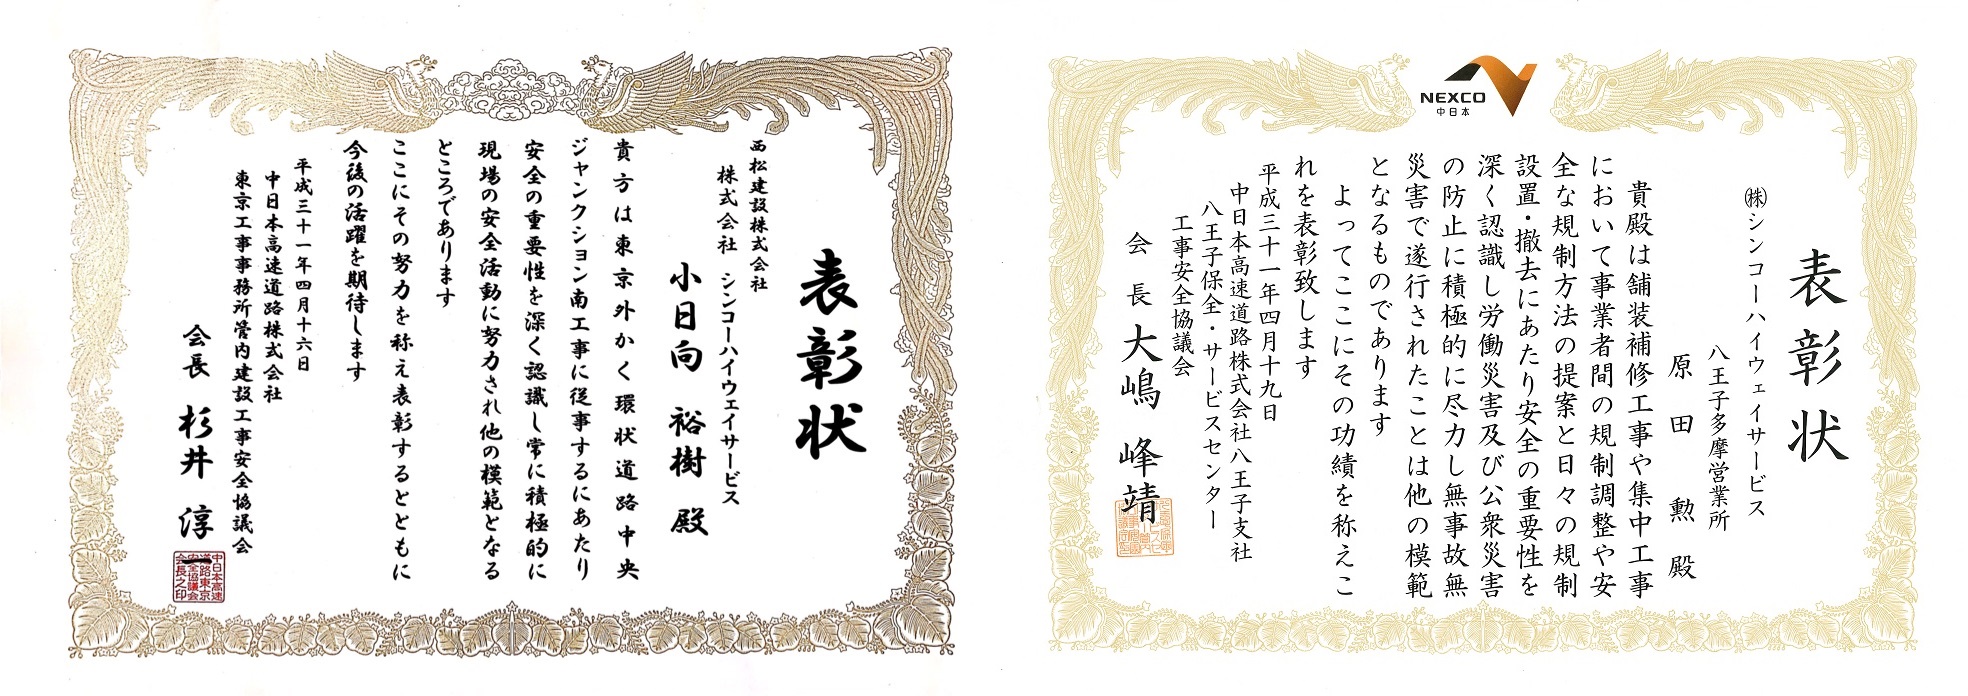 表彰状
西松建設株式会社
株式会社 シンコーハイウェイサービス
小日向 裕樹 殿
貴方は東京外かく環状道路中央
ジャンクション南工事に従事するにあたり
安全の重要性を深く認識し常に積極的に
現場の安全活動に努力され他の模範となる
ところであります
ここにその努力を称え表彰するとともに
今後の活躍を期待します
平成三十一年四月十六日
中日本高速道路株式会社
東京工事事務所管内建設工事安全協議会
会長 杉井 淳
中日本高速
道路東京
安全協議会
会長之印
NEXCO
中日本
表彰状
㈱シンコーハイウェイサービス
八王子多摩営業所
原田 勲 殿
貴殿は舗装補修工事や集中工事
において事業者間の規制調整や安
全な規制方法の提案と日々の規制
設置・撤去にあたり安全の重要性を
深く認識し労働災害及び公衆災害
の防止に積極的に尽力し無事故無
災害で遂行されたことは他の模範
となるものであります
よってここにその功績を称えこ
れを表彰致します
平成三十一年四月十九日
中日本高速道路株式会社八王子支社
八王子保全・サービスセンター
工事安全協議会
会長 大嶋 峰靖